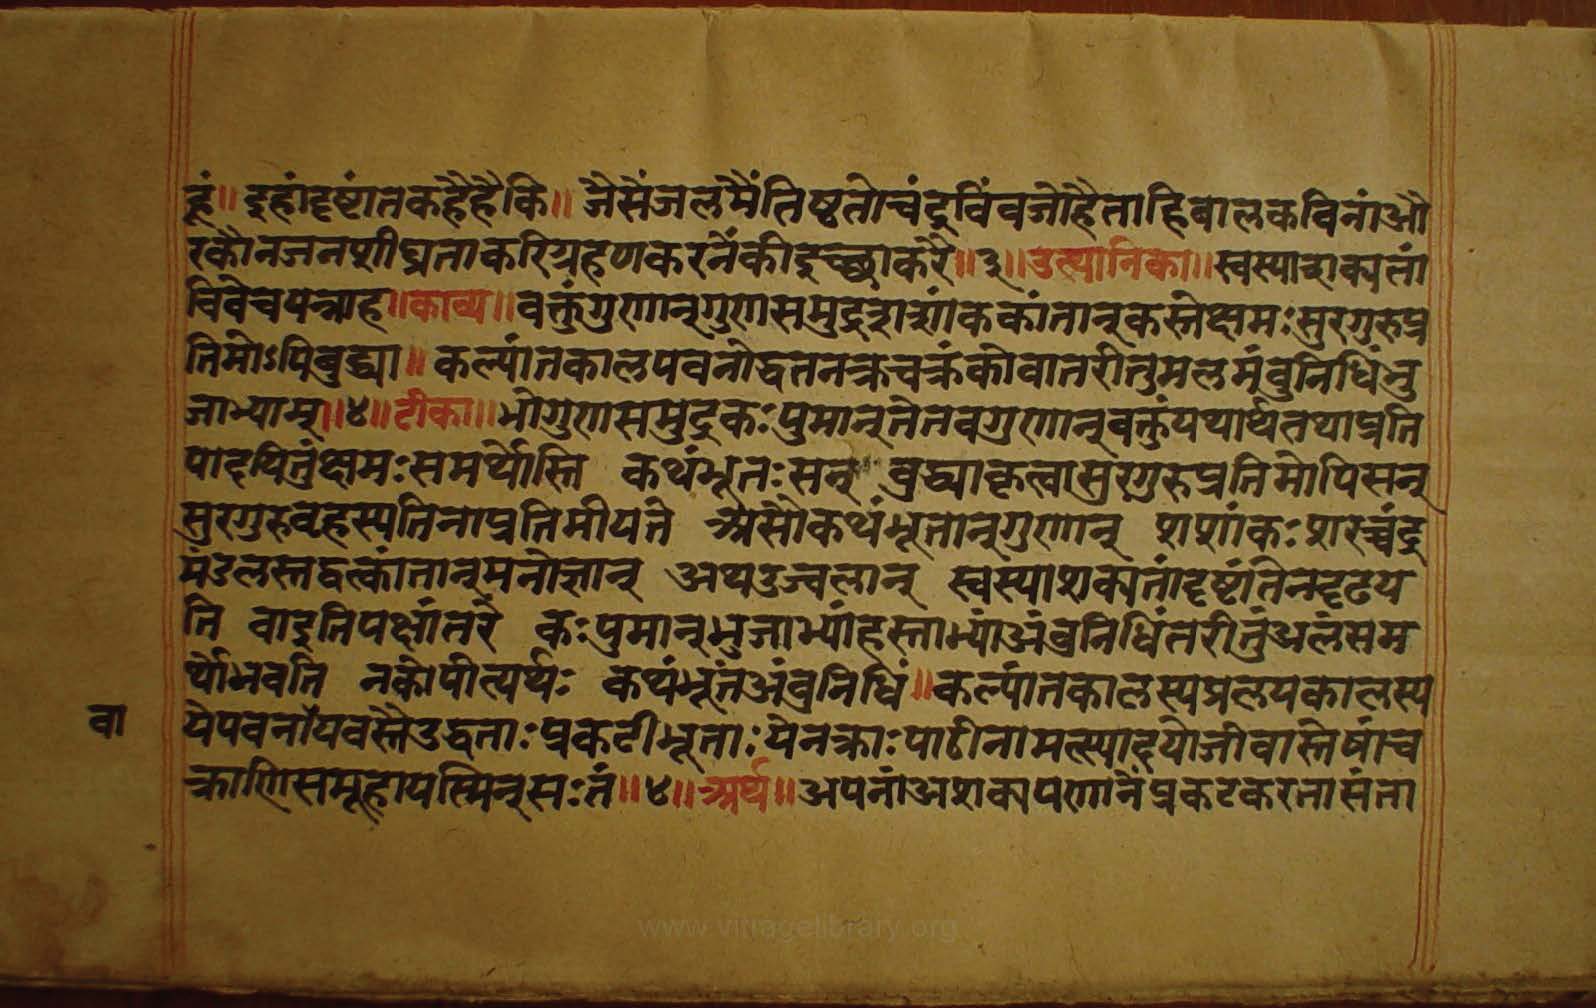 हूं॥ इहांदृष्टांतकहैहैकि॥ जैसैंजलमैंतिष्ठतोचंद्रविंवजोहैताहिबालकविनांऔ
रकौनजनशीघ्रताकरिग्रहणकरनैंकीइच्छाकरै॥३॥उत्थानिका॥स्वस्याशक्यतां
विवेचयन्नाह॥काव्य॥वक्तुंगुणान्गुणसमुद्रशशांककांतान्कस्तेक्षमःसुरगुरुप्र
तिमोऽपिबुद्ध्या॥ कल्पांतकालपवनोद्धतनक्रचक्रंकोवातरीतुमलमंवुनिधिंभु
जाभ्याम्॥४॥टीका॥भोगुणसमुद्रकःपुमान्तेतवगुणान्वक्तुंयथार्थतथाप्रति
पादयितुंक्षमःसमर्थोस्ति कथंभूतःसन् वुद्ध्याकृत्वासुरगुरुप्रतिमोपिसन्
सुरगुरुवृहस्पतिनाप्रतिमीयते असौकथंभूतान्गुणान् शशांकःशरच्चंद्र
मंडलस्तद्वत्कांतान्मनोज्ञान् अथउज्वलान् स्वस्याशक्यतांदृष्टांतेनदृढय
ति वाइतिपक्षांतरे कःपुमान्भुजाभ्यांहस्ताभ्यांअंवुनिधिंतरीतुंअलंसम
र्थोभवति नकोपीत्यर्थः कथंभूतंअंवुनिधिं॥कल्पांतकालस्यप्रलयकालस्य
वा येपवनांयवस्तैउद्धताःप्रकटीभूताःयेनक्राःपाठीनामत्स्यादयोजीवास्तेषांच
क्राणिसमूहायस्मिन्सःतं॥४॥अर्थ॥अपनांअशक्यपणानैंप्रकटकरतासंता
www.vitragelibrary.org